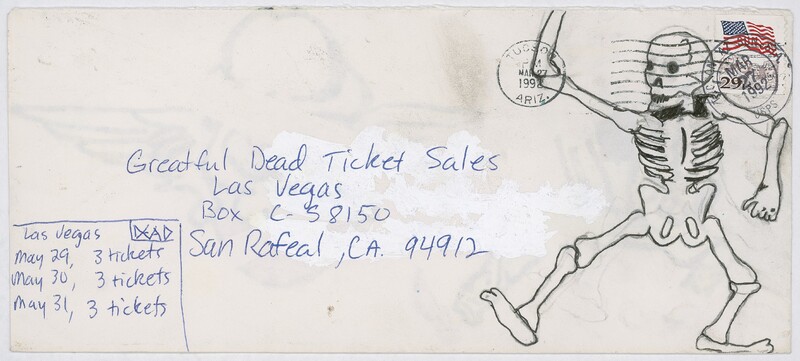 TUCSON
MAR 27
1992
ARIZ.
MAR
1992
29
Greatful Dead Ticket Sales
Las Vegas
Box C-S 8150
San Rafeal, CA. 94912
Las Vegas DEAD
May 29, 3 tickets
May 30, 3 tickets
May 31, 3 tickets